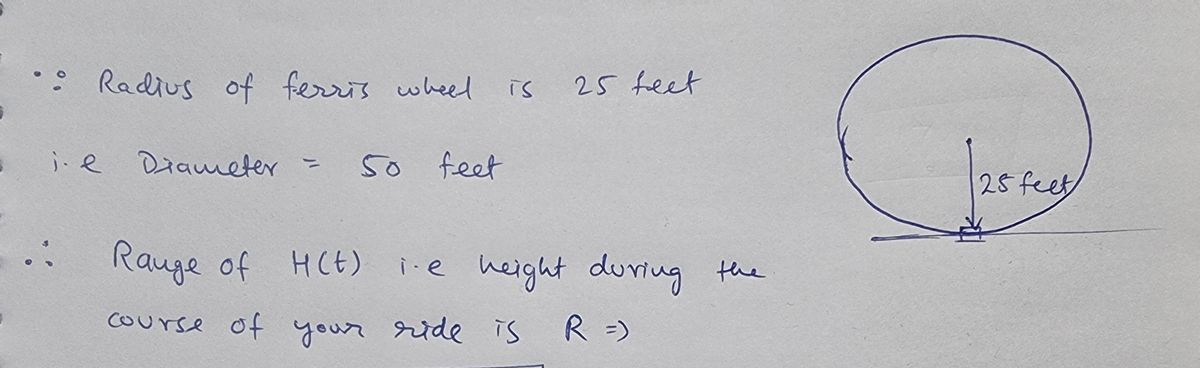 ∵ Radius of ferris wheel is 25 feet
i.e Diameter = 50 feet
25 feet
∴ Range of H(t) i.e height during the
course of your ride is R ⇒